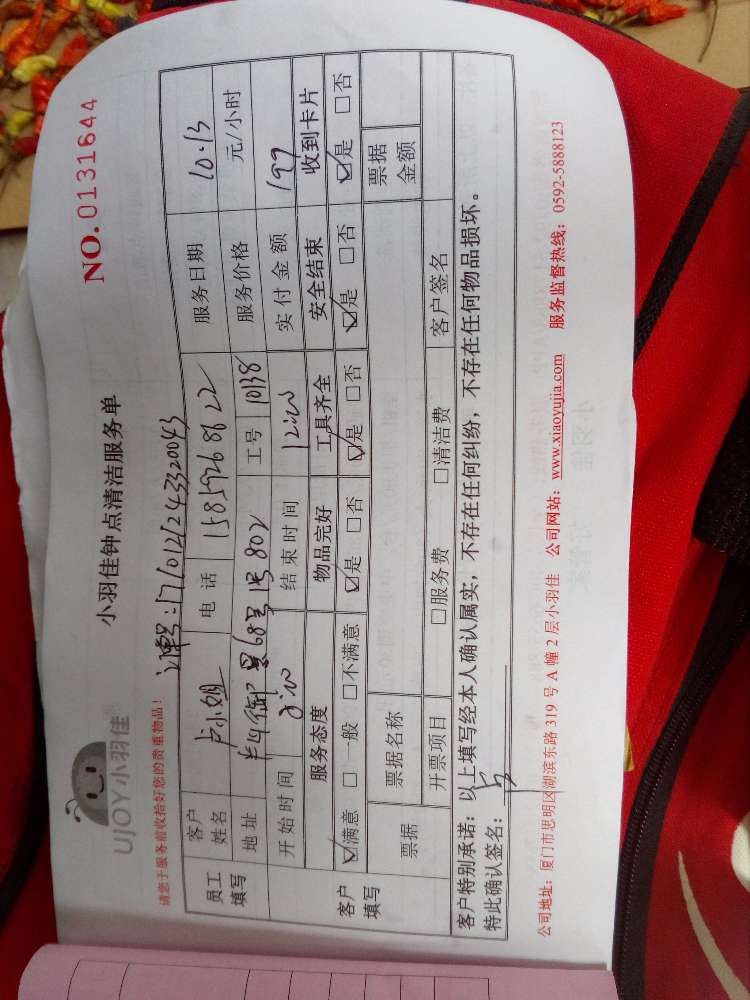 UJOY小羽佳
小羽佳钟点清洁服务单
NO. 0131644
请您于服务前收拾好您的贵重物品!
订单号:1710121243320043
员工填写
客户姓名 卢小姐 电话 15859268622 服务日期 10.13
地址 68号1号802 工号 10138 服务价格 元/小时
客户填写
开始时间 结束时间 12:00 实付金额 199
服务态度 物品完好 工具齐全 安全结束 收到卡片
☑满意 □一般 □不满意 ☑是 □否 ☑是 □否 ☑是 □否 ☑是 □否
票据 票据名称 票据金额
开票项目 □服务费 □清洁费 客户签名
客户特别承诺:以上填写经本人确认属实,不存在任何纠纷,不存在任何物品损坏。
特此确认签名:
公司地址:厦门市思明区湖滨东路 319 号 A 幢 2 层小羽佳 公司网站:www.xiaoyujia.com 服务监督热线:0592-5888123